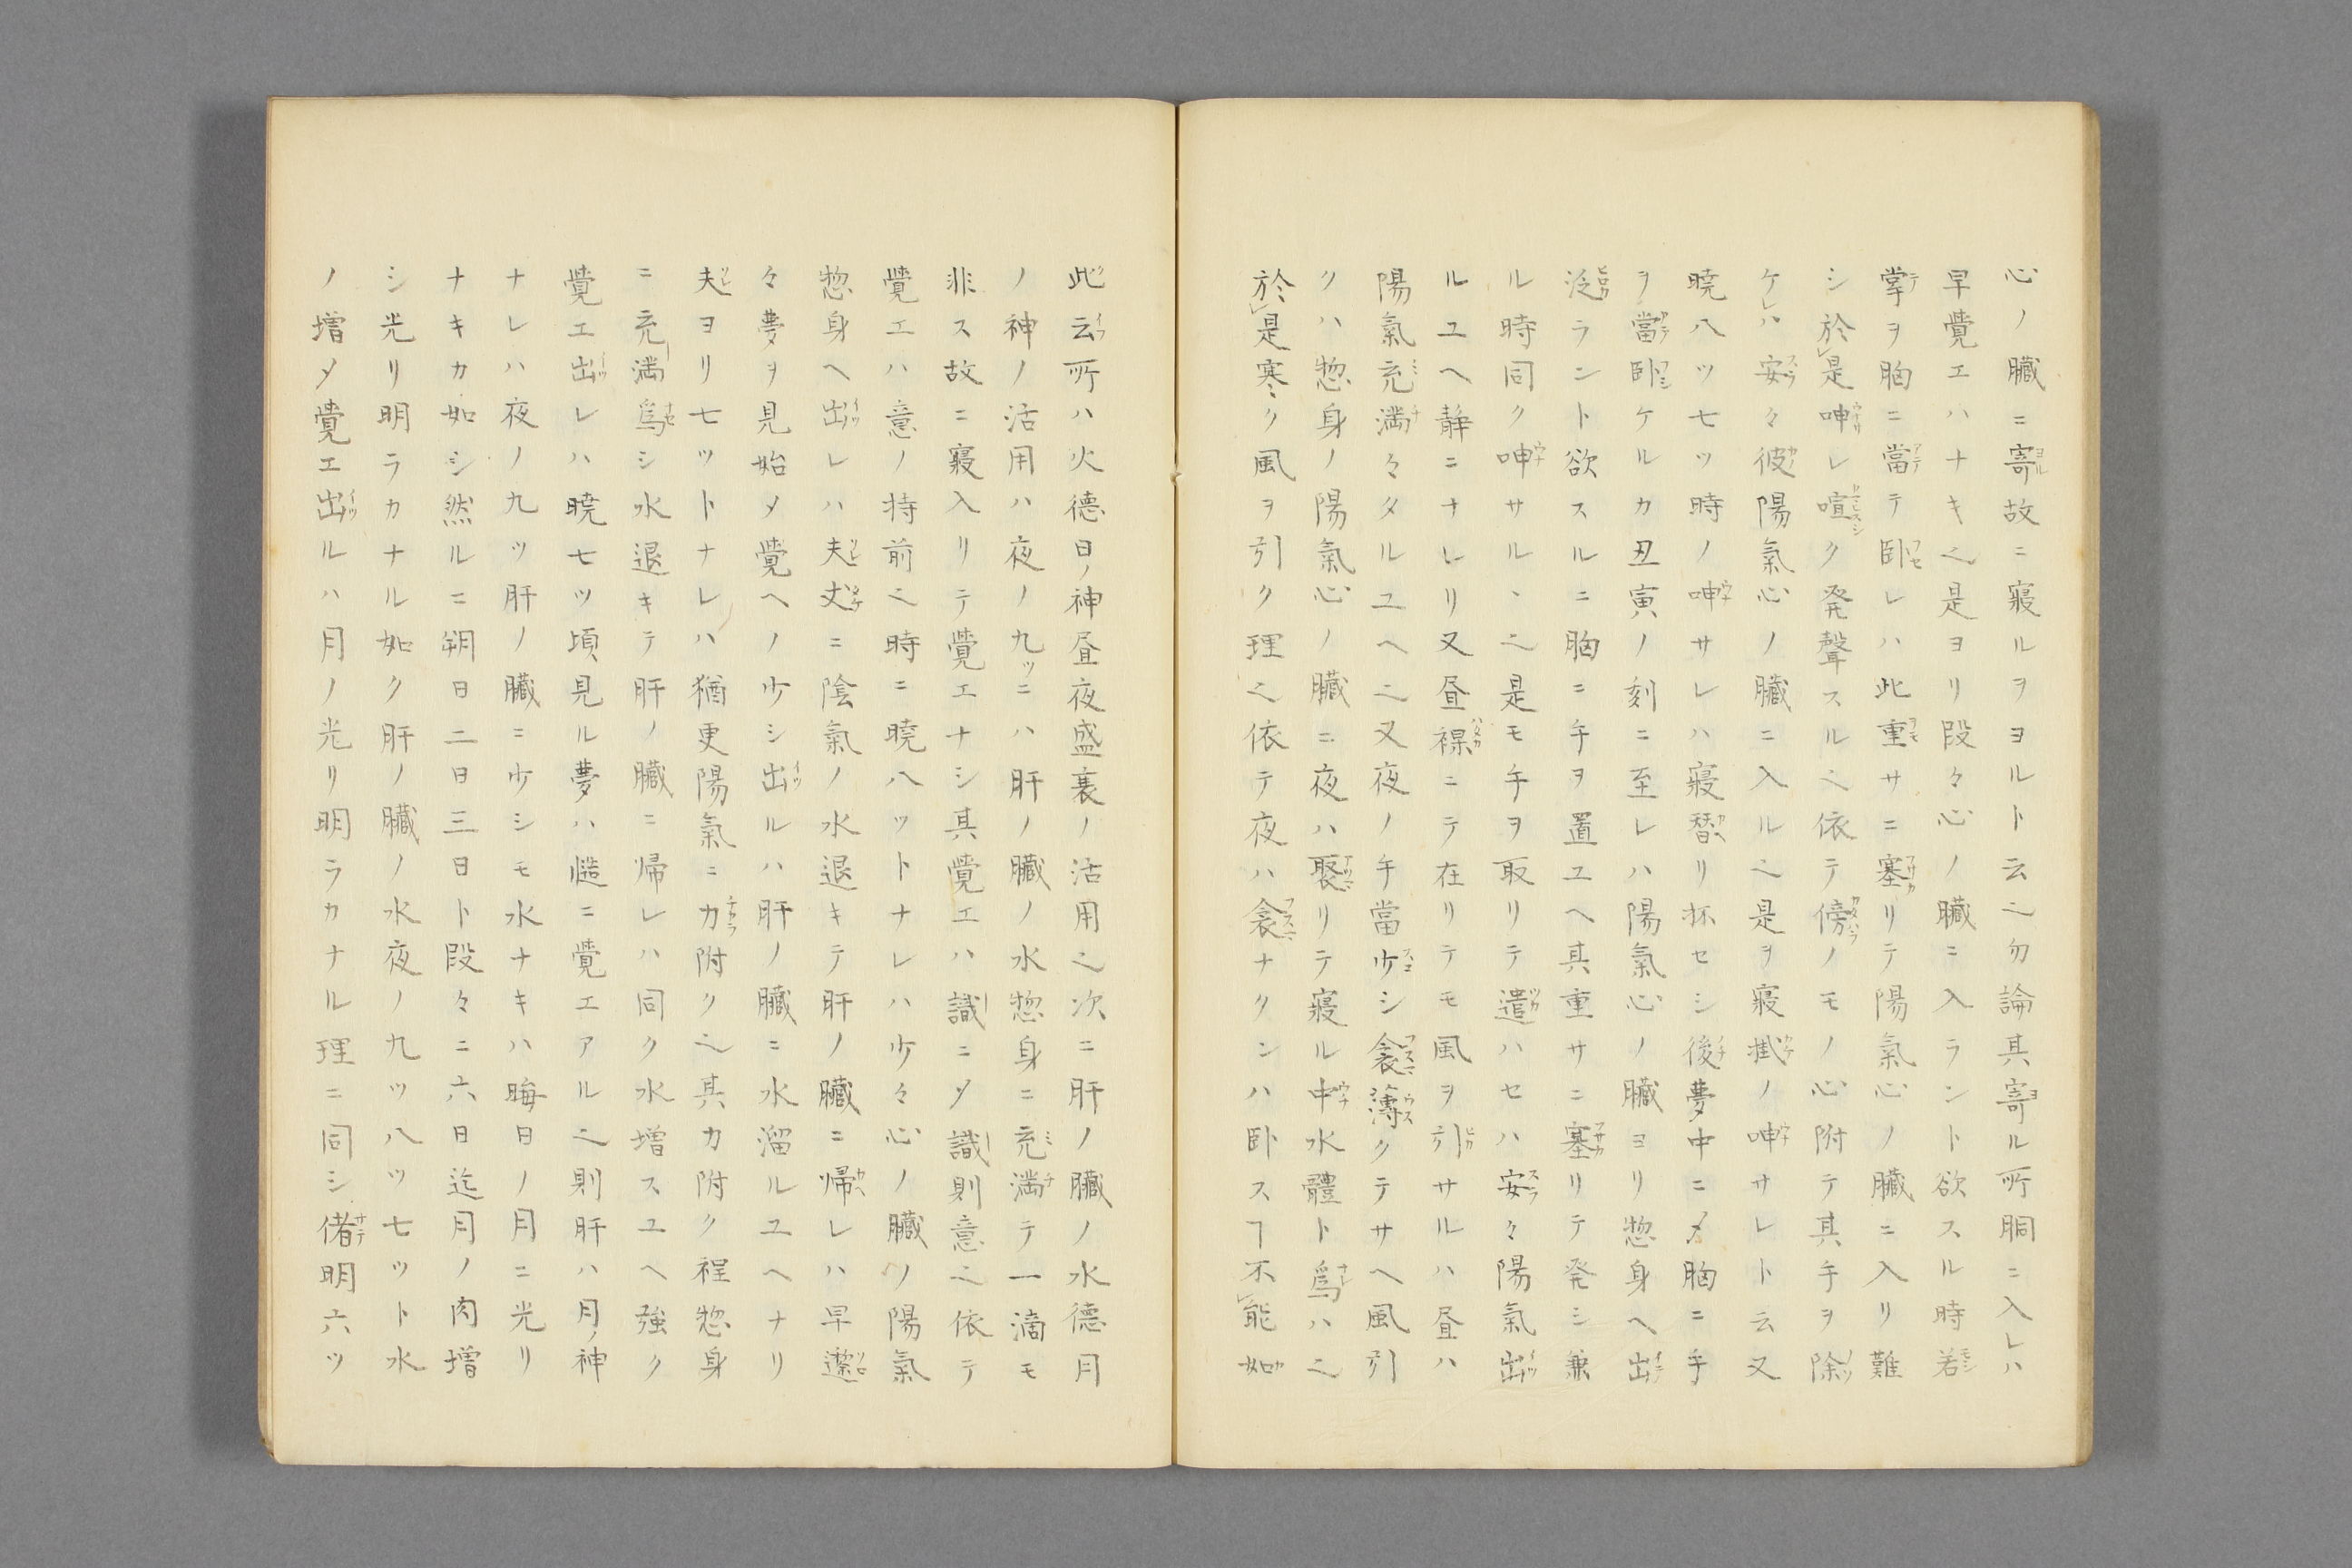 心ノ臓ニ寄故ニ寢ルヲヨルト云之勿論其寄ル所胴ニ入レハ
早覺エハナキ之是ヨリ段々心ノ臓ニ入ラント欲スル時若
掌ヲ胸ニ當テ卧レハ此重サニ塞リテ陽氣心ノ臓ニ入リ難
シ於是呻レ喧ク発聲スル之依テ傍ノモノ心附テ其手ヲ除
ケレハ安々彼陽氣心ノ臓ニ入ル之是ヲ寢掛ノ呻サレト云又
暁八ッ七ッ時ノ呻サレハ寢替リ抔セシ後夢中ニ〆胸ニ手
ヲ當卧ケルカ丑寅ノ刻ニ至レハ陽氣心ノ臓ヨリ惣身ヘ出
泛ラント欲スルニ胸ニ手ヲ置ユヘ其重サニ塞リテ発シ兼
ル時同ク呻サルヽ之是モ手ヲ取リテ遣ハセハ安々陽氣出
ルユヘ静ニナレリ又昼裸ニテ在リテモ風ヲ引サルハ昼ハ
陽氣充満々タルユヘ之又夜ノ手當少シ衾薄クテサヘ風引
クハ惣身ノ陽氣心ノ臓ニ夜ハ聚リテ寢ル中水體ト為ハ之
於是寒ク風ヲ引ク理之依テ夜ハ衾ナクンハ卧スヿ不能如
此云所ハ火德日ノ神昼夜盛衰ノ活用之次ニ肝ノ臓ノ水德月
ノ神ノ活用ハ夜ノ九ッニハ肝ノ臓ノ水惣身ニ充満テ一滴モ
非ス故ニ寢入リテ覺エナシ其覺エハ識ニ〆識則意之依テ
覺エハ意ノ持前之時ニ暁八ットナレハ少々心ノ臓ノ陽氣
惣身ヘ出レハ夫丈ニ陰氣ノ水退キテ肝ノ臓ニ帰レハ早邃
々夢ヲ見始メ覺ヘノ少シ出ルハ肝ノ臓ニ水溜ルユヘナリ
夫ヨリ七ットナレハ猶更陽氣ニ力附ク之其力附ク程惣身
ニ充満為シ水退キテ肝ノ臓ニ帰レハ同ク水增スユヘ強ク
覺エ出レハ暁七ッ頃見ル夢ハ慥ニ覺エアル之則肝ハ月ノ神
ナレハ夜ノ九ッ肝ノ臓ニ少シモ水ナキハ晦日ノ月ニ光リ
ナキカ如シ然ルニ朔日二日三日ト段々ニ六日迄月ノ肉增
シ光リ明ラカナル如ク肝ノ臓ノ水夜ノ九ッ八ッ七ット水
ノ增〆覺エ出ルハ月ノ光リ明ラカナル理ニ同シ偖明六ッ